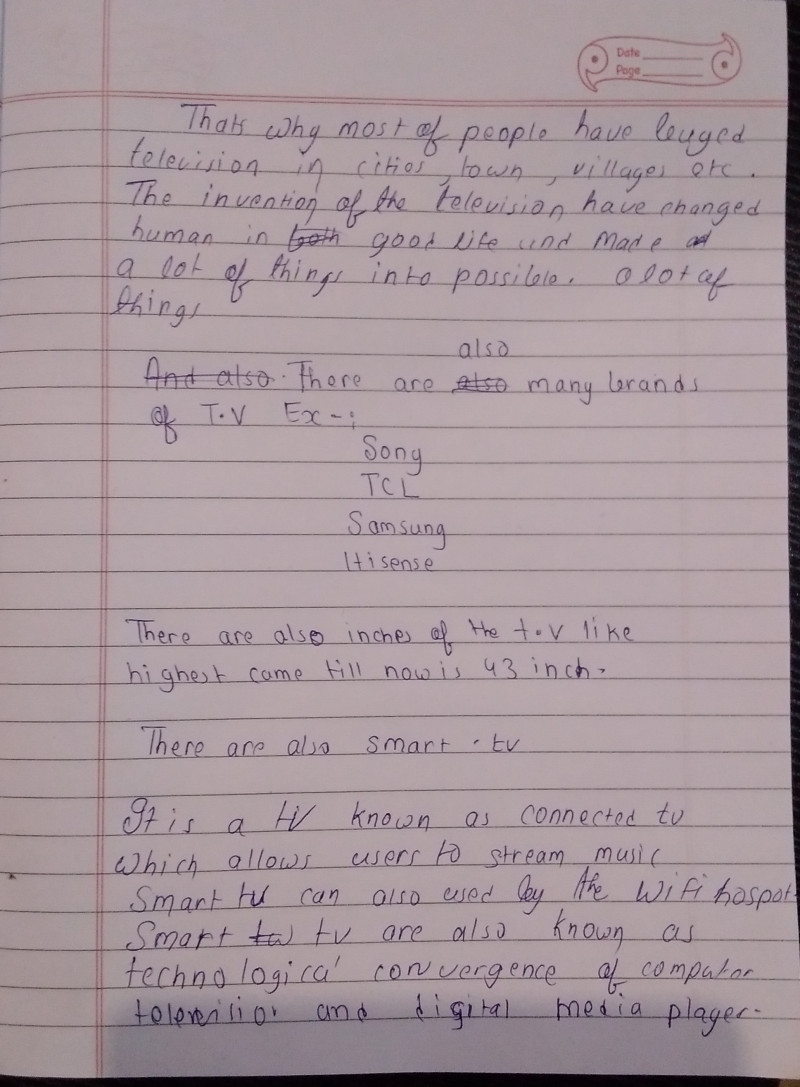 Date
Page
Thats why most of people have leuged
television in cities, town, villages etc.
The invention of the television have changed
human in both good life and made
a lot of things into possible. a lot of
things
also
And also. There are also many brands
of T.V Ex-;
Sony
TCL
Samsung
Hisense
There are also inches of the t.v like
highest came till now is 43 inch.
There are also smart . tv
It is a tv known as connected tv
which allows users to stream music
Smart tv can also used by the wifi hospot
Smart tw tv are also known as
technological convergence of computor
television and digital media player.